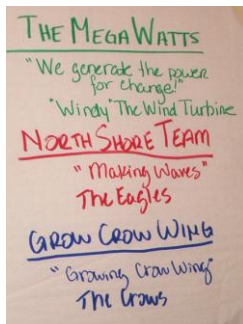 THE MEGAWATTS
"We generate the power
for change!"
"Windy" The Wind Turbine
NORTH SHORE TEAM
"Making Waves"
The Eagles
GROW CROW WING
"Growing Crow Wing"
The Crows